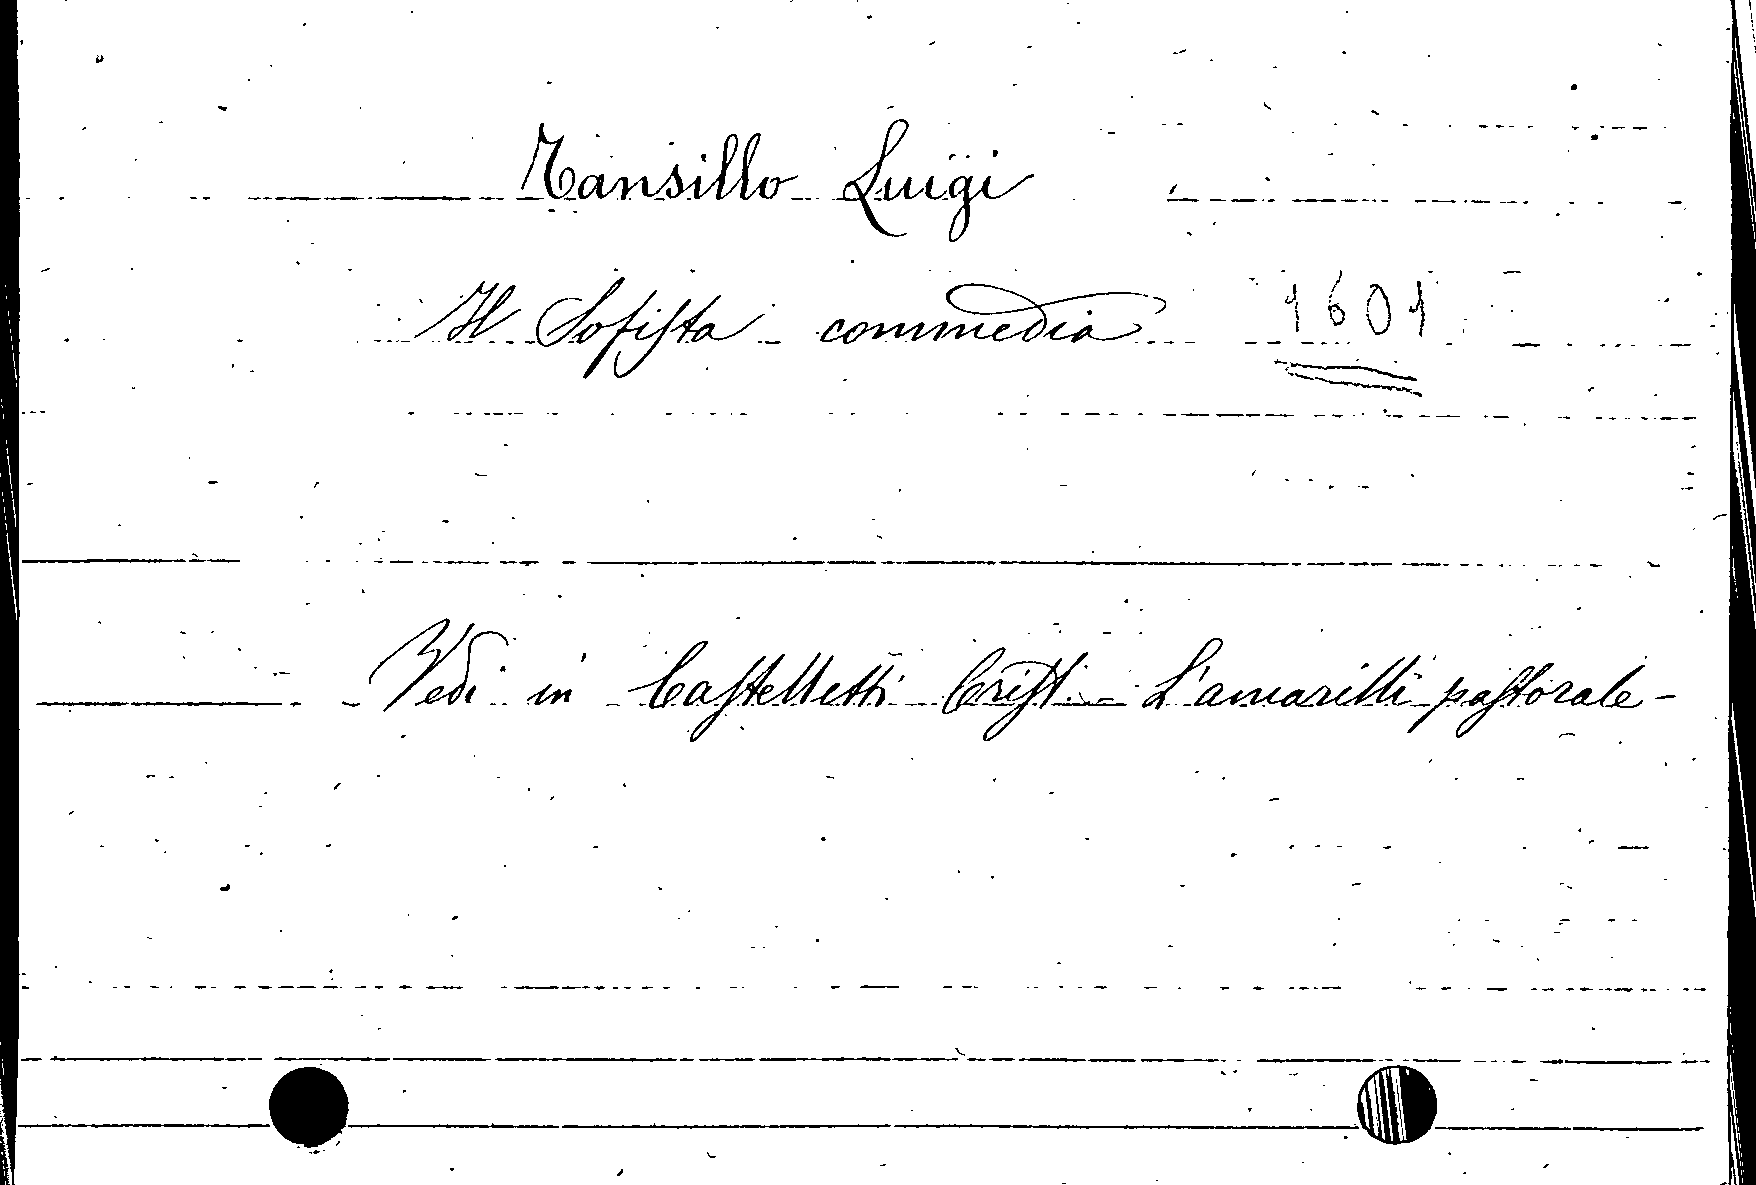 Tansillo Luigi
Il Sofista - commedia 1601
Vedi in Castelletti Crist. - L'amarilli pastorale -